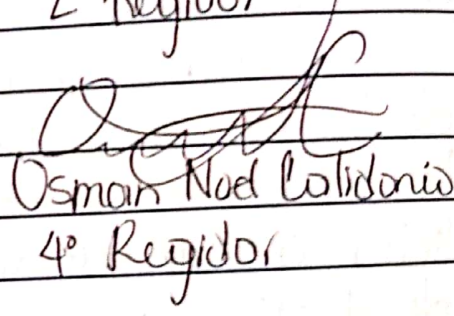 2° Regidor
Osman Noel Colidonio
4° Regidor